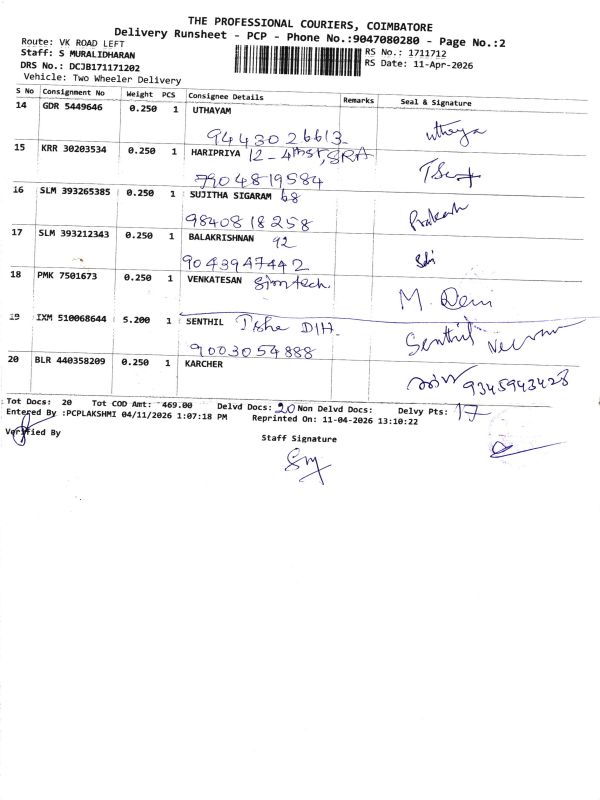 THE PROFESSIONAL COURIERS, COIMBATORE
Delivery Runsheet - PCP - Phone No.:9047080280 - Page No.:2
Route: VK ROAD LEFT
Staff: S MURALIDHARAN
RS No.: 1711712
DRS No.: DCJB171171202
RS Date: 11-Apr-2026
Vehicle: Two Wheeler Delivery
S No Consignment No Weight PCS Consignee Details Remarks Seal & Signature
14 GDR 5449646 0.250 1 UTHAYAM
9443026613 uthaya
15 KRR 30203534 0.250 1 HARIPRIYA 12-4th st, SRA
7904819584
16 SLM 393265385 0.250 1 SUJITHA SIGARAM 68
9840818258 Prakash
17 SLM 393212343 0.250 1 BALAKRISHNAN 92
9043947442
18 PMK 7501673 0.250 1 VENKATESAN Simtech.
M. Devi
19 IXM 510068644 5.200 1 SENTHIL
9003054888 Senthil
20 BLR 440358209 0.250 1 KARCHER
9345943428
Tot Docs: 20 Tot COD Amt: 469.00 Delvd Docs: 20 Non Delvd Docs: Delvy Pts: 17
Entered By :PCPLAKSHMI 04/11/2026 1:07:18 PM Reprinted On: 11-04-2026 13:10:22
Verified By
Staff Signature